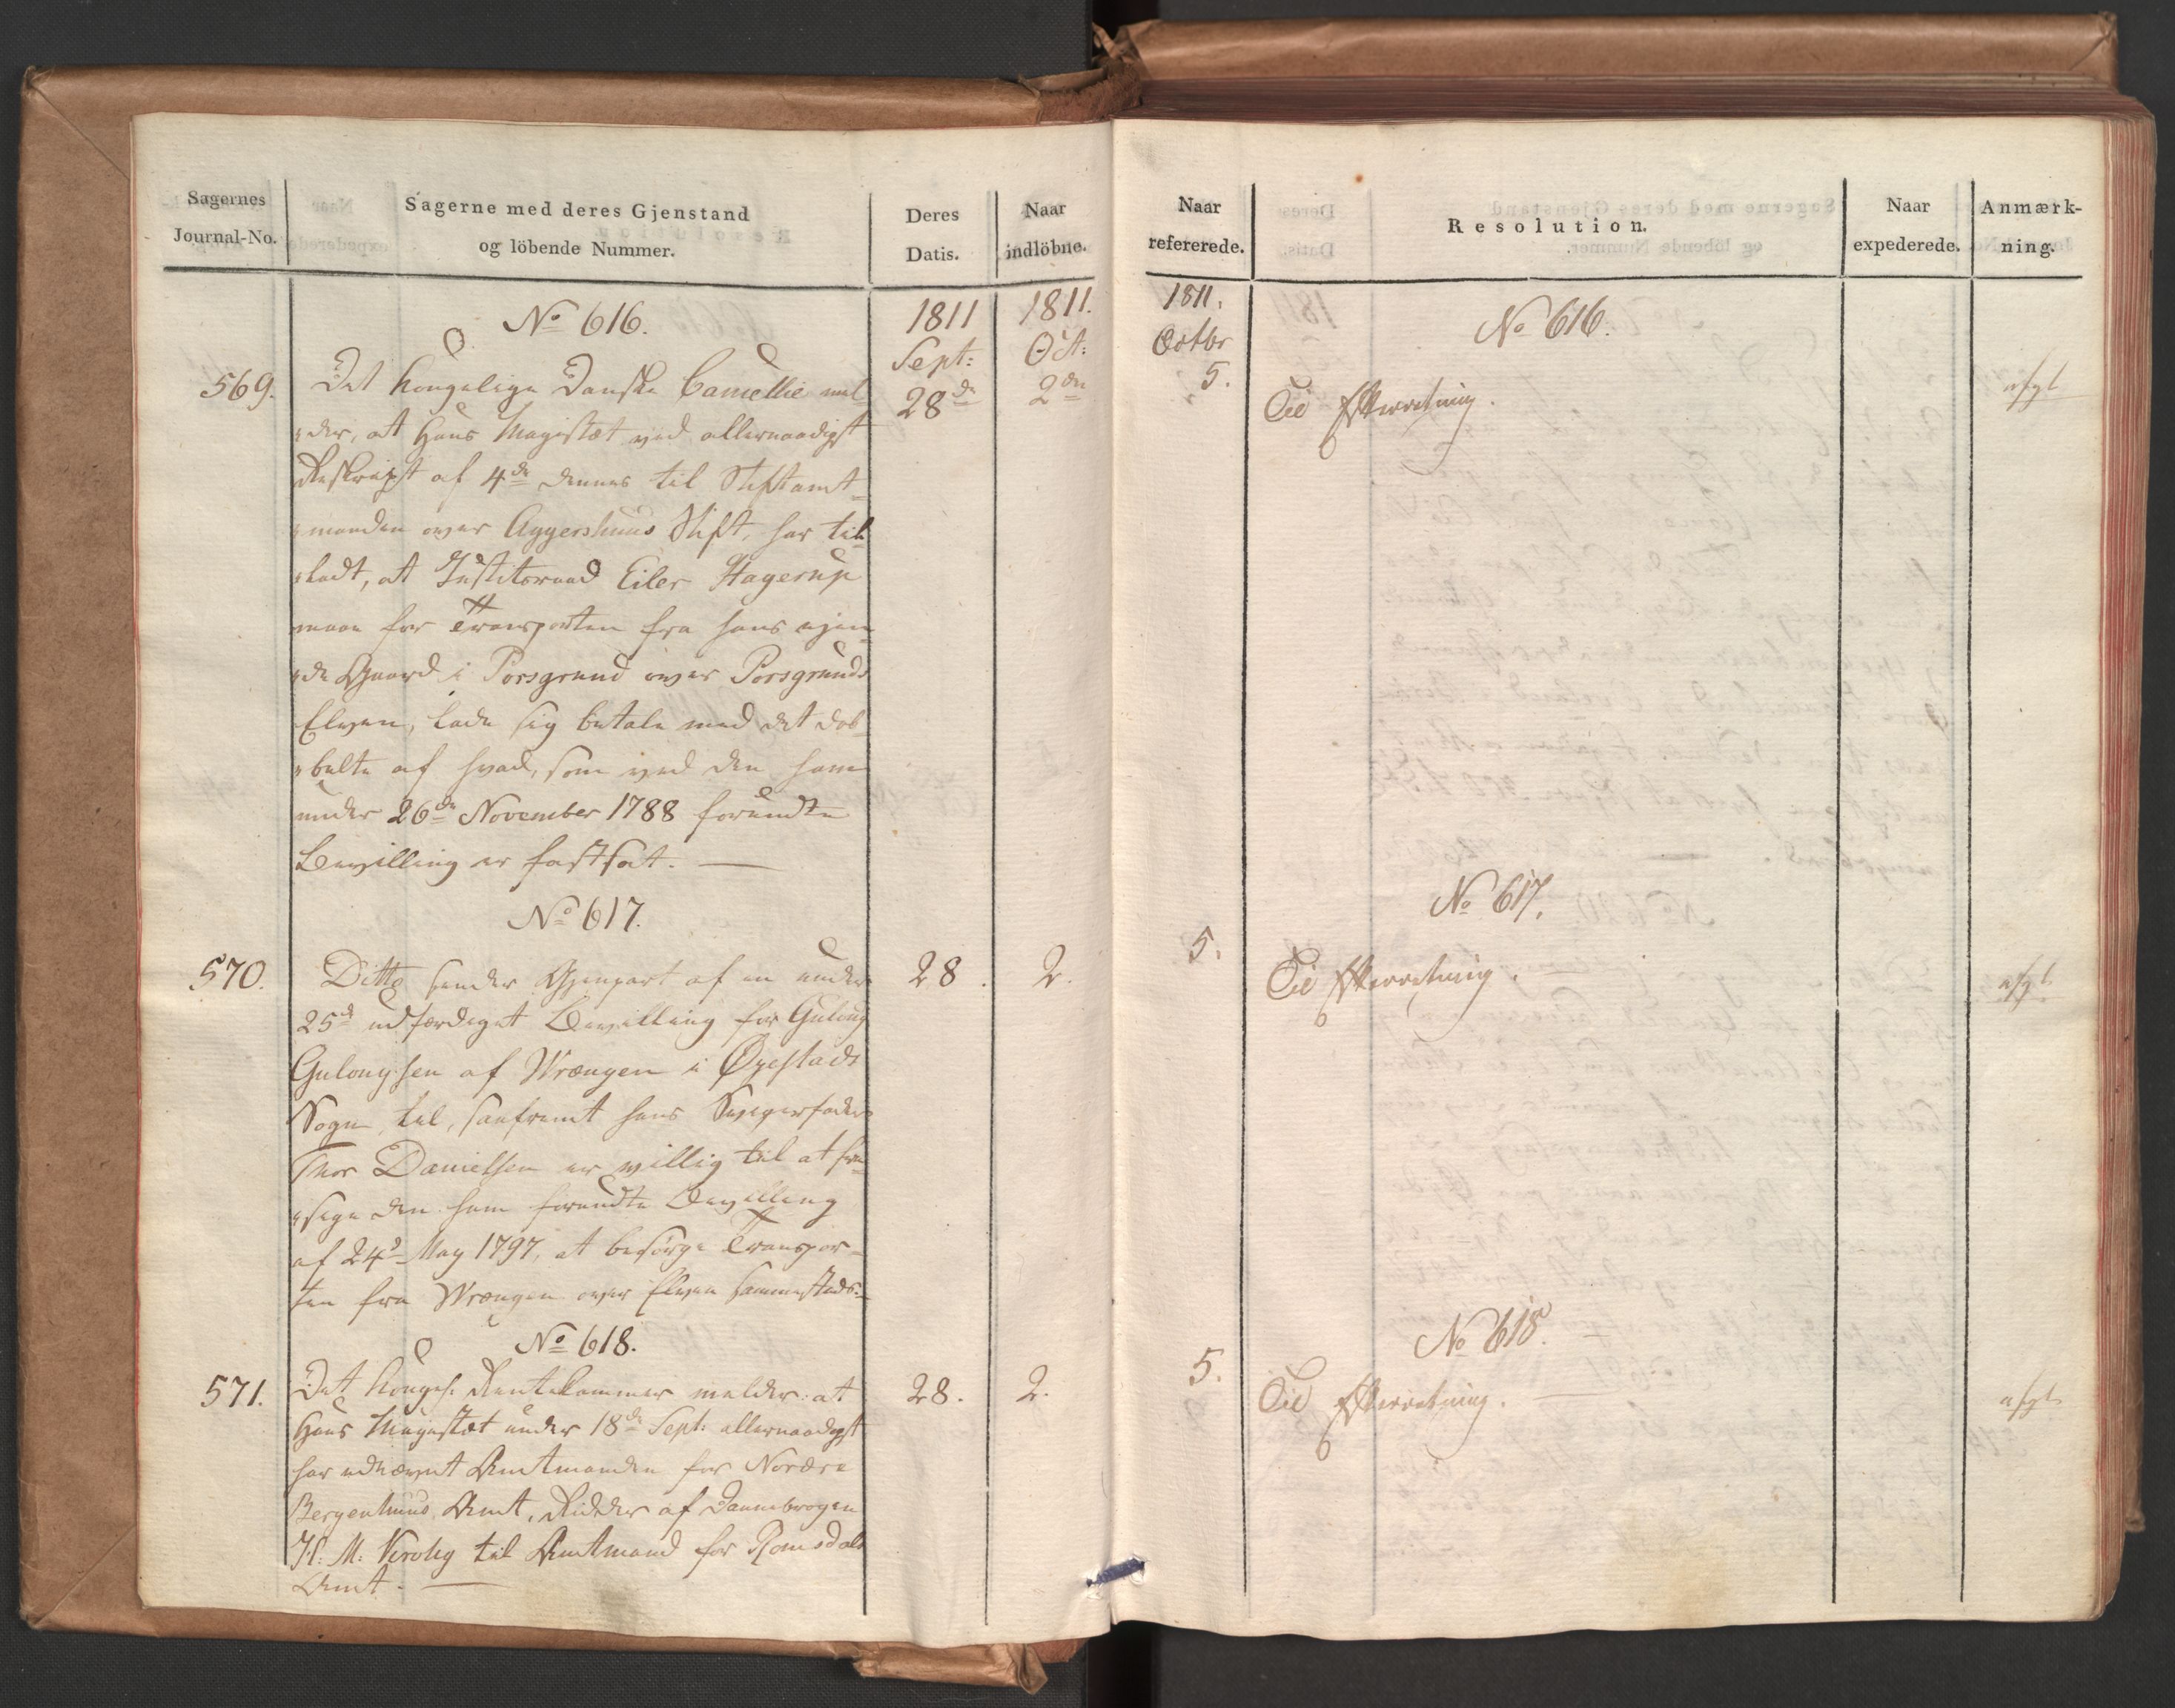 Sagernes
Journal-No.
Sagerne med deres Gjenstand
og löbende Nummer.
Deres
Datis.
Naar
indlöbne.
No 616.
1811
Sept:
28de
1811.
Oct:
2den
569.
Det kongelige Danske Cancellie mel-
der, at Hans Majestæt ved allernaadigst
Reskript af 4de dennes til Stiftamt-
manden over Aggershuus Stift, har til-
ladt, at Justitsraad Eiler Hagerup
maae for Transporten fra hans ejen-
de Gaard i Porsgrund over Porsgrunds
Elven, lade sig betale med det dob-
belte af hvad, som ved den ham
under 26de November 1788 forundte
Bevilling er fastsat. —
No 617.
570.
Ditto sender Gjenpart af en under
25de udfærdiget Bevilling for Gulow
Gulowsen af Wrængen i Øyestads
Sogn, til, saafremt hans Svigerfader
Thor Danielsen er villig til at fra-
sige den ham forundte Bevilling
af 24de May 1797, at besørge Transpor-
ten fra Wrængen over Elven sammesteds.
28.
2.
No 618.
571.
Det kongel. Rentekammer melder: at
Hans Majestæt under 18de Sept: allernaadigst
har udnævnt Amtmanden for Nordre
Bergenhuus Amt, Ridder af Dannebrogen
H: M: Krohg til Amtmand for Romsdals
Amt. —
28.
2.
Naar
refererede.
Resolution.
Naar
expederede.
Anmærk-
ning.
1811.
Octbr
5.
No 616.
Til Efterretning.
afgl
No 617.
5.
Til Efterretning.
afgl
No 618.
5.
Til Efterretning. —
afgl